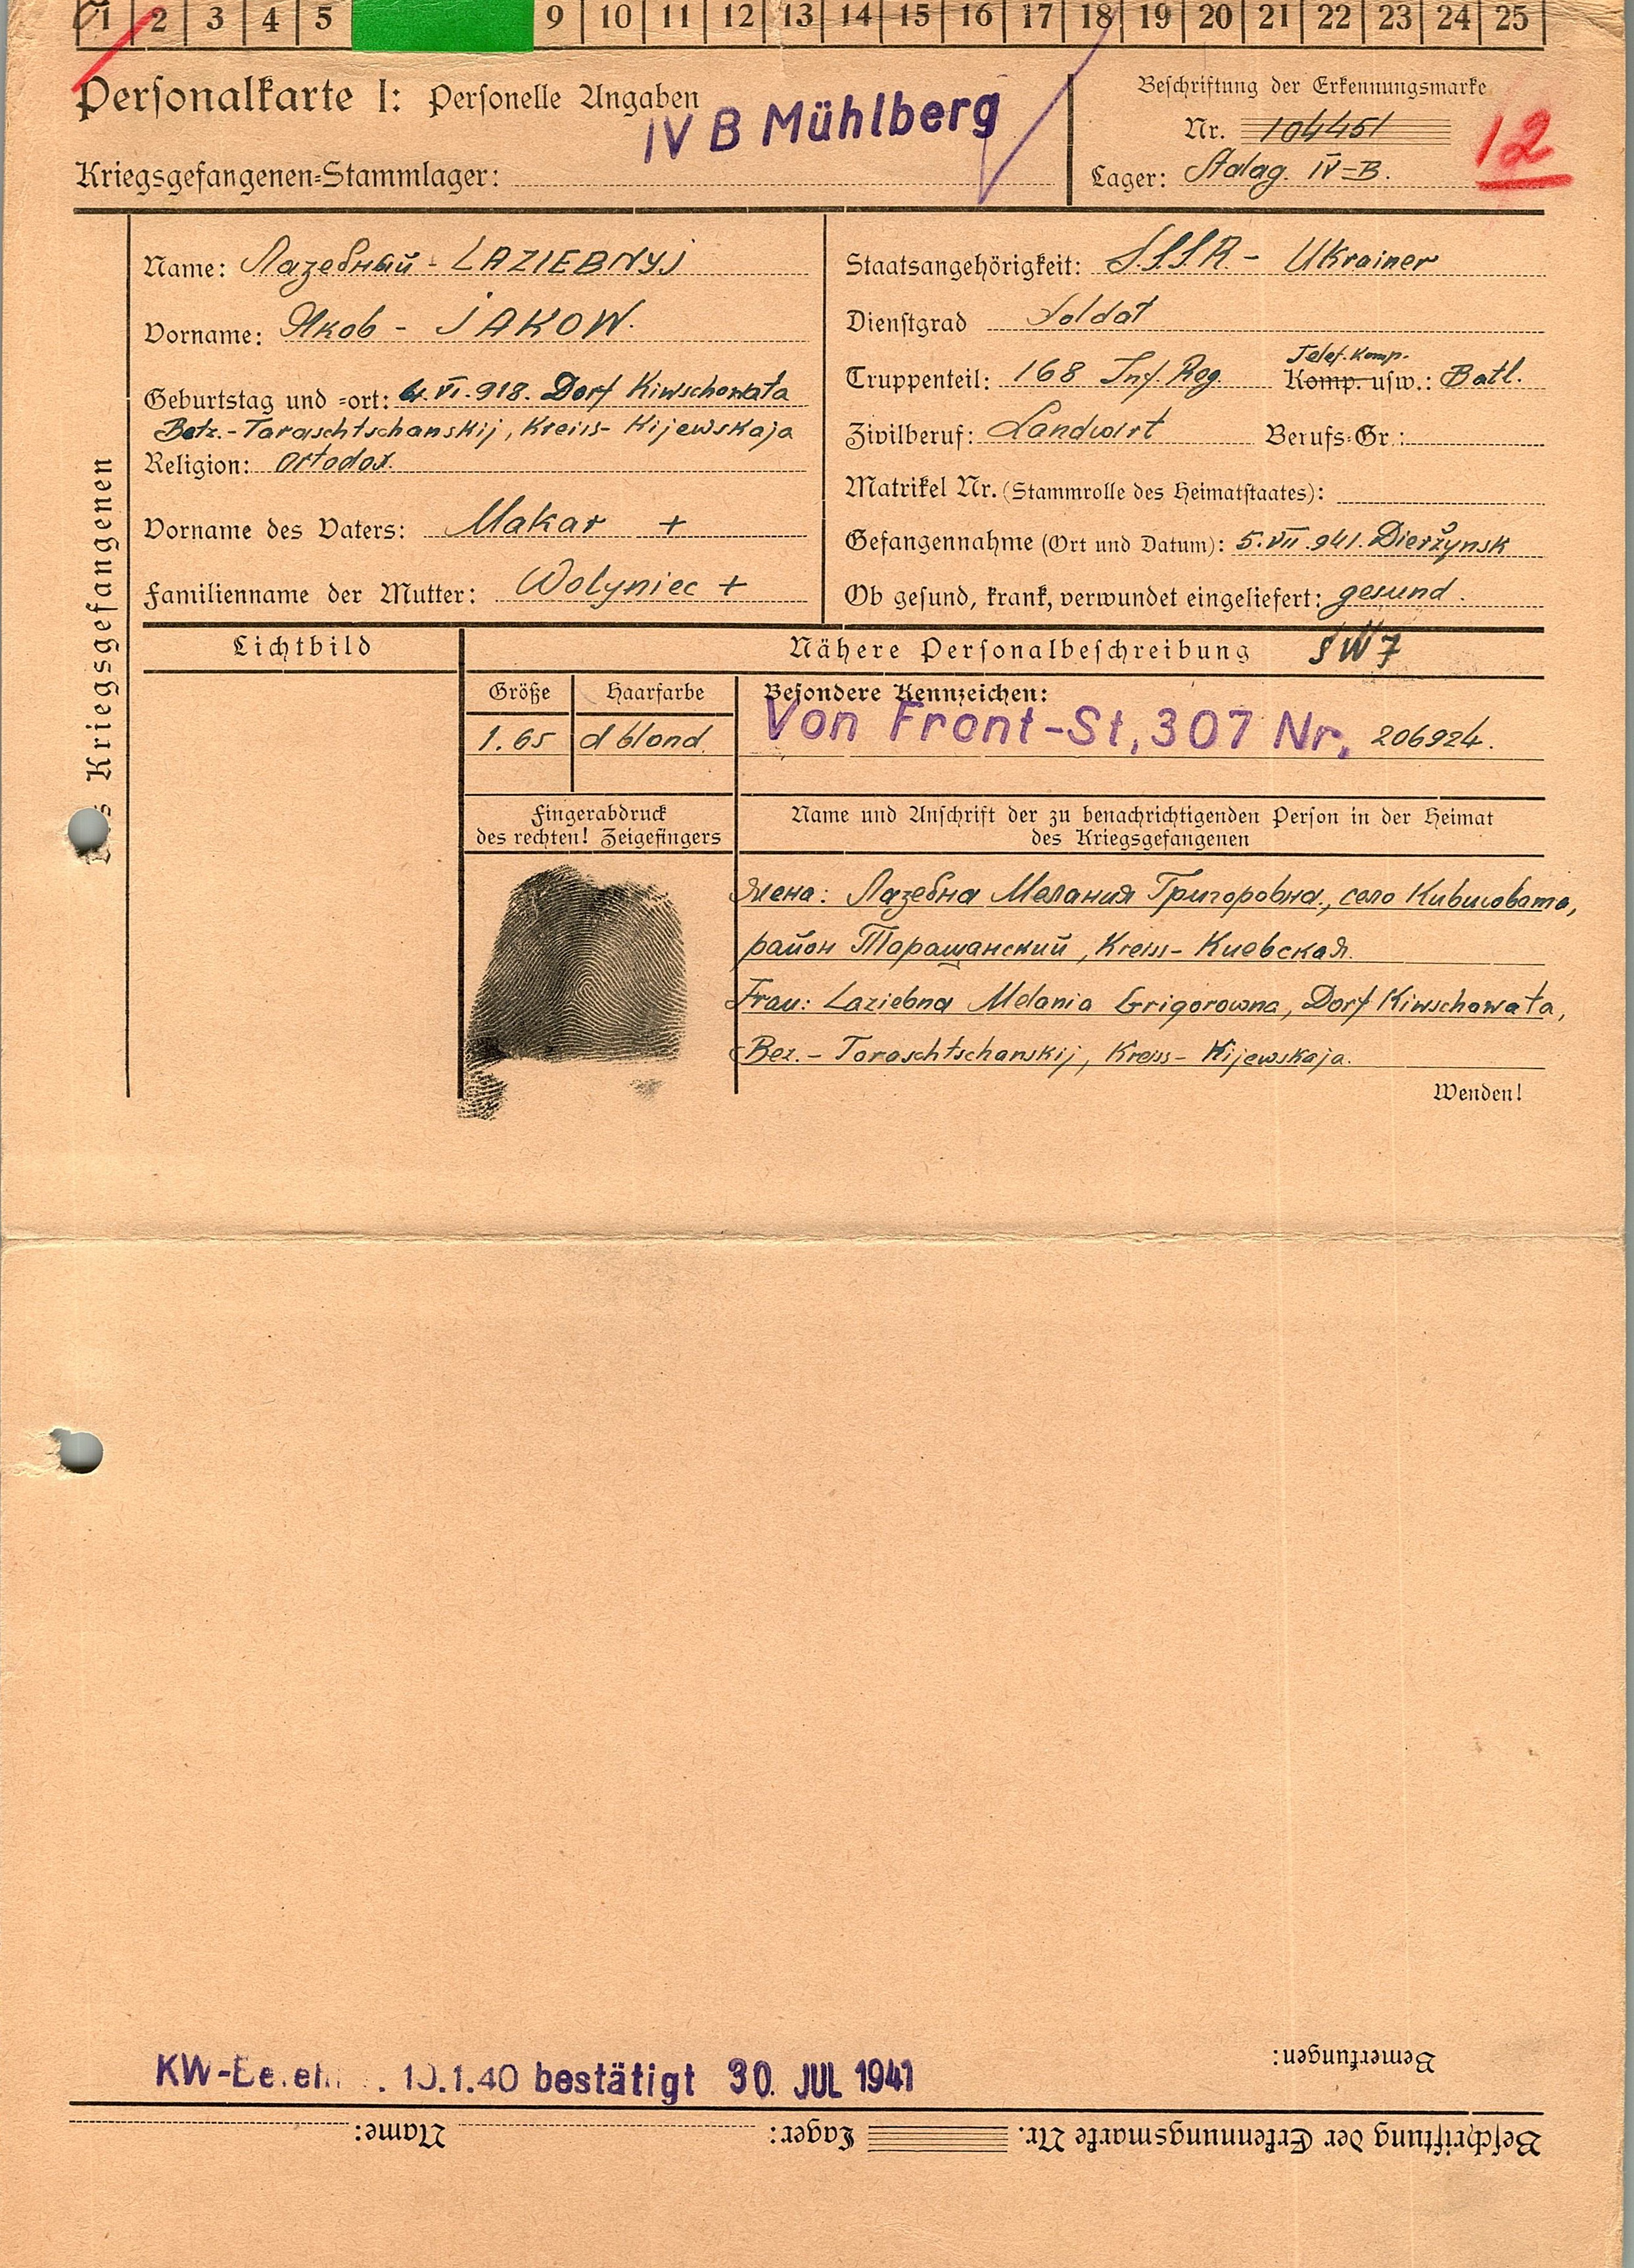 1 2 3 4 5 9 10 11 12 13 14 15 16 17 18 19 20 21 22 23 24 25
Personalkarte I: Personelle Angaben
IV B Mühlberg
Kriegsgefangenen-Stammlager:
Beschriftung der Erkennungsmarke
Nr. 104451
Lager: Stalag IV-B.
12
Des Kriegsgefangenen
Name: Лазебный - LAZIEBNYJ
Vorname: Яков - JAKOW.
Geburtstag und -ort: 6.VI.918. Dorf Kiwschowata
Betz.-Taraschtschanskij, Kreiss-Kijewskaja
Religion: ortodox.
Vorname des Vaters: Makar +
Familienname der Mutter: Wolyniec +
Staatsangehörigkeit: S.S.S.R. - Ukrainer
Dienstgrad Soldat
Telef. Komp.
Truppenteil: 168 Inf. Reg. Komp. usw.: Batl.
Zivilberuf: Landwirt Berufs-Gr.:
Matrikel Nr. (Stammrolle des Heimatstaates):
Gefangennahme (Ort und Datum): 5.VII.941. Dierżynsk
Ob gesund, krank, verwundet eingeliefert: gesund.
Lichtbild
Nähere Personalbeschreibung SW7
Größe Haarfarbe Besondere Kennzeichen:
1.65 d blond. Von Front-St, 307 Nr. 206924.
Fingerabdruck
des rechten! Zeigefingers
Name und Anschrift der zu benachrichtigenden Person in der Heimat
des Kriegsgefangenen
Жена: Лазебна Мелания Григоровна., село Кившовата,
район Таращанский, Kreiss - Киевская.
Frau: Laziebna Melania Grigorowna, Dorf Kiwschowata,
Bez. - Taraschtschanskij, Kreiss - Kijewskaja.
Wenden!
Bemerkungen:
KW- 1.40 bestätigt 30. JUL 1941
Beschriftung der Erkennungsmarke Nr. Lager: Name: